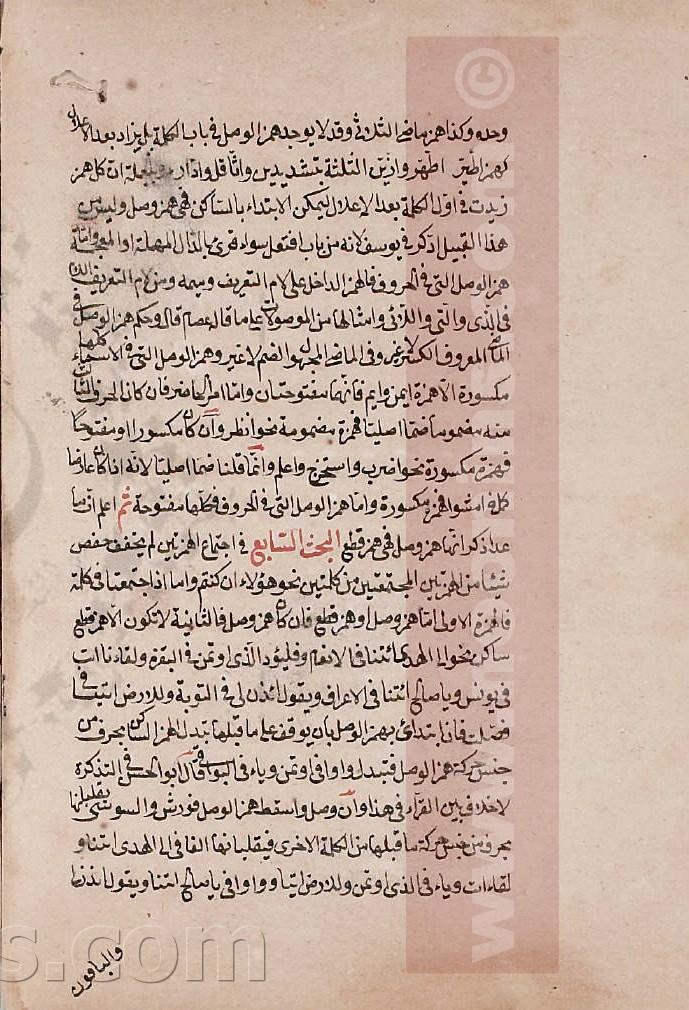 وحده وكذا همزة ماضي الثلاثي وقد لا يوجد همز الوصل في باب الكلمة بل يزاد بعد الاعلال
كهمز اطير اطهر وازين الثلثة بتشديدين واثاقل وادارء وبالجملة ان كل همز
زيدت في اول الكلمة بعد الاعلال ليمكن الابتداء بالساكن فهي همز وصل وليس من
هذا القبيل اذكر في يوسف لانه من باب افتعل سواء قرئ بالدال المهملة او المعجمة واما
همز الوصل التي في الحروف فالهمز الداخل على لام التعريف وميمه ومن لام التعريف اللام
في الذي والتي واللائي وامثالها من الموصولات على ما قاله عصام قال وحكم همز الوصل في
الماضي المعروف الكسر لا غير وفي الماضي المجهول الضم لا غير وهمز الوصل التي في الاسماء كلها
مكسورة الا همزة ايمن وايم فانهما مفتوحتان واما امر الحاضر فان كان الحرف الثالث
منه مضموما ضما اصليا فهمزة مضمومة نحو انظر وان كان مكسورا او مفتوحا
فهمزة مكسورة نحو اضرب واستخرج واعلم وانما قلنا ضما اصليا لانه اذا كان عارضا
كما في امشوا فهمز مكسورة واما همز الوصل التي في الحروف فكلها مفتوحة ثم اعلم ان ما
عدا ذكر انها همز وصل فهي همز قطع البحث السابع في اجتماع الهمزتين لم يخفف حفص
شيئا من الهمزتين المجتمعتين من كلمتين نحو هؤلاء ان كنتم واما اذا اجتمعتا في كلمة
فالهمزة الاولى اما همز وصل او همز قطع فان كان همز وصل فالثانية لا تكون الا همز قطع
ساكن نحو الى الهدى ائتنا في الانعام وفليؤد الذي اوتمن في البقرة ولقاءنا ائت
في يونس ويا صالح ائتنا في الاعراف ويقول ائذن لي في التوبة وللارض ائتيا في
فصلت فاذا ابتدائ بهمز الوصل بان يوقف على ما قبلها تبدل الهمز الساكن بحرف من
جنس حركة همز الوصل فتبدل واوا في اوتمن وياء في البواقي قال ابو الحسن في التذكرة
لا خلاف بين القراء في هذا وان وصل واسقط همز الوصل فورش والسوسي يقلبانها
بحرف من جنس حركة ما قبلها من الكلمة الاخرى فيقلبانها الفا في الى الهدى ائتنا و
لقاءنا ائت وياء في الذي اوتمن وللارض ائتيا وواوا في يا صالح ائتنا ويقول ائذن لي
والباقون
www.
s.com
©